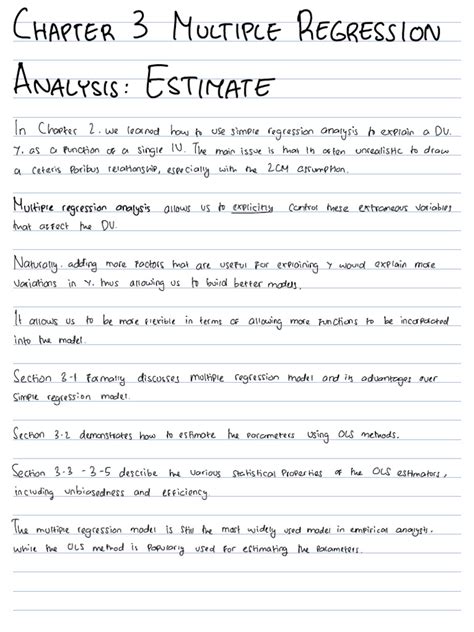 CHAPTER 3 MULTIPLE REGRESSION
ANALYSIS: ESTIMATE
In Chapter 2, we learned how to use simple regression analysis to explain a DV.
y, as a function of a single IV. The main issue is that it often unrealistic to draw
a ceteris paribus relationship, especially with the ZCM assumption.
Multiple regression analysis allows us to explicitly control these extraneous variables
that affect the DV.
Naturally, adding more factors that are useful for explaining y would explain more
variations in y, thus allowing us to build better models.
It allows us to be more flexible in terms of allowing more functions to be incorporated
into the model.
Section 3-1 formally discusses multiple regression model and its advantages over
simple regression model.
Section 3-2 demonstrates how to estimate the parameters using OLS methods.
Section 3-3 - 3-5 describe the various statistical properties of the OLS estimators,
including unbiasedness and efficiency.
The multiple regression model is still the most widely used model in empirical analysis.
while the OLS method is popularly used for estimating the parameters.